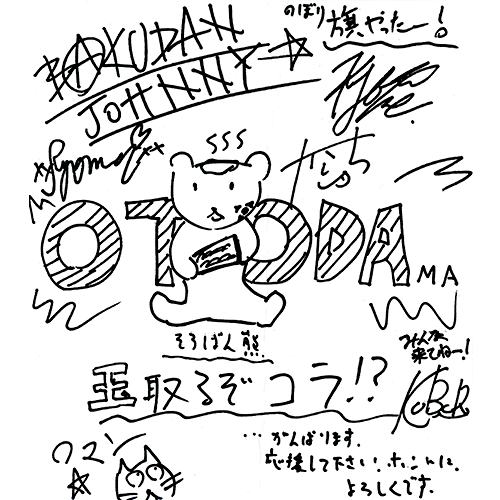 BAKUDAN
JOHNNY
のぼり
旗やったー!
OTODAMA
そろばん熊
王取るぞコラ!?
みんな
来てねー!
ワマン
...がんばります。
応援して下さい。ホントに。
よろしくです。